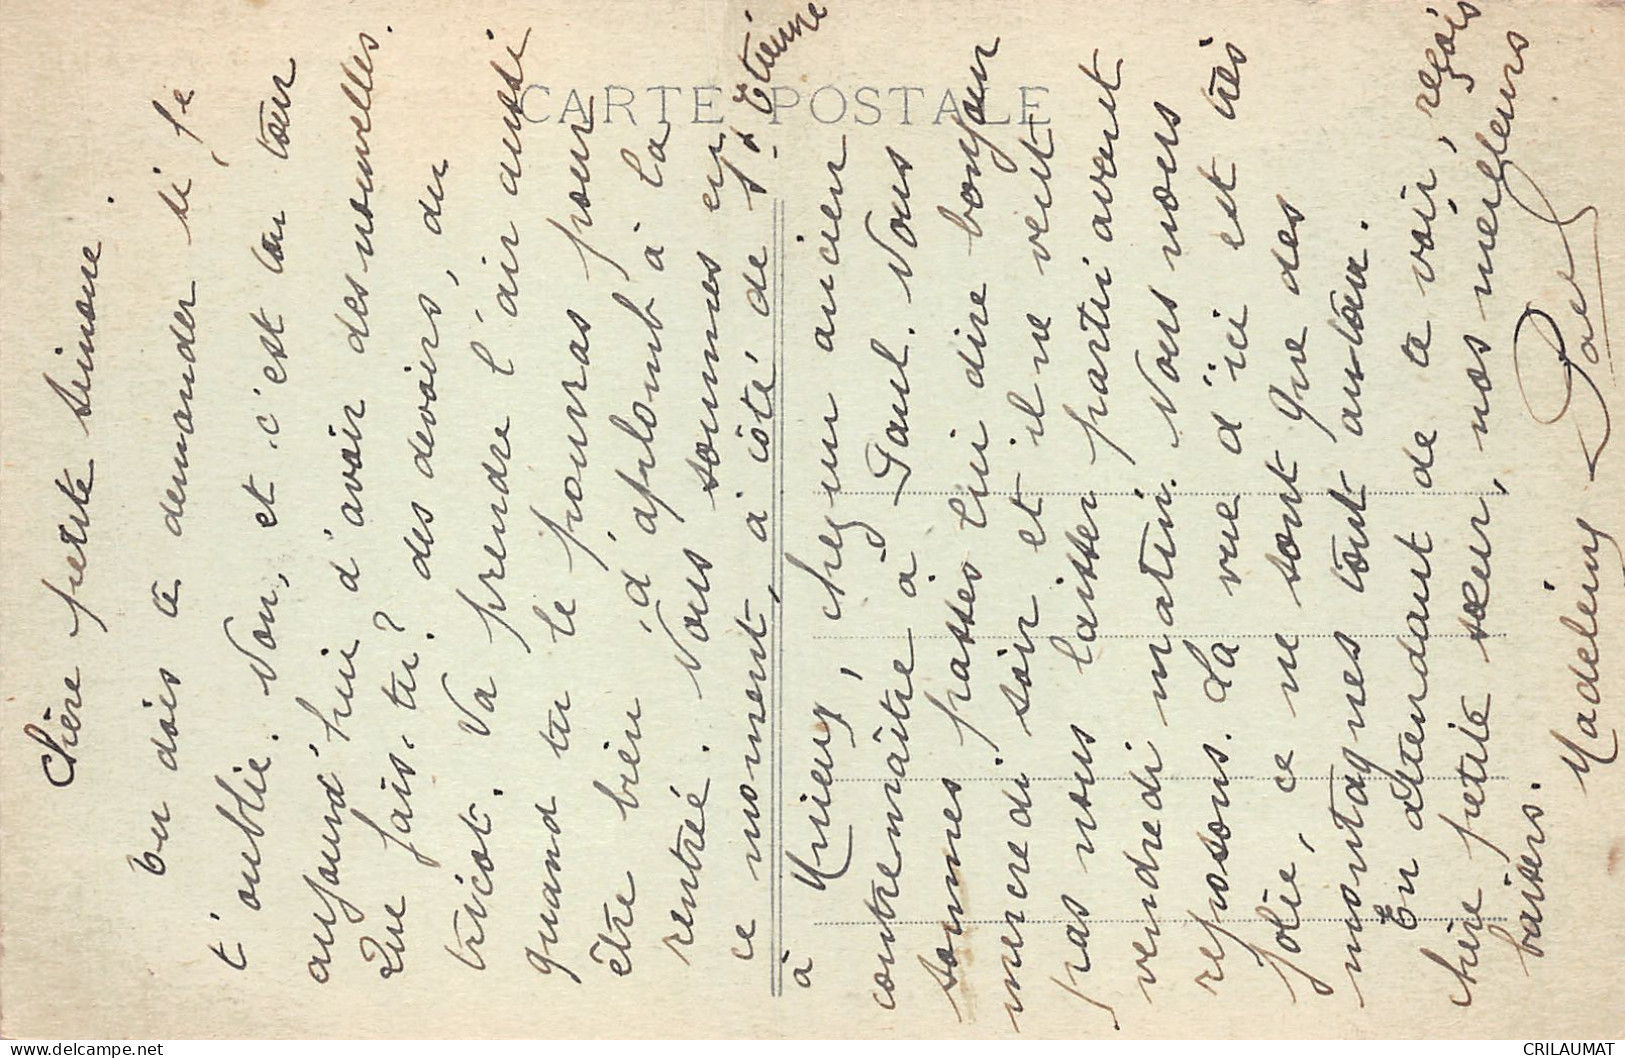 Chère petite Simone.
Tu dois te demander si je
t'oublie. Non, et c'est ton tour
aujourd'hui d'avoir des nouvelles.
Que fais-tu? des devoirs, du
tricot. Va prendre l'air aussi
quand tu le pourras pour
être bien d'aplomb à la
rentrée. Nous sommes en
ce moment, à côté de St Etienne
à Unieux, chez un ancien
contremaître à Paul. Nous
sommes passés lui dire bonjour
mercredi soir et il ne veut
pas nous laisser partir avant
vendredi matin. Nous nous
reposons. La vue d'ici est très
jolie, ce ne sont que des
montagnes tout autour.
En attendant de te voir, reçois
chère petite sœur, nos meilleurs
baisers.
Madeleine Paul
CARTE POSTALE
CRILAUMAT